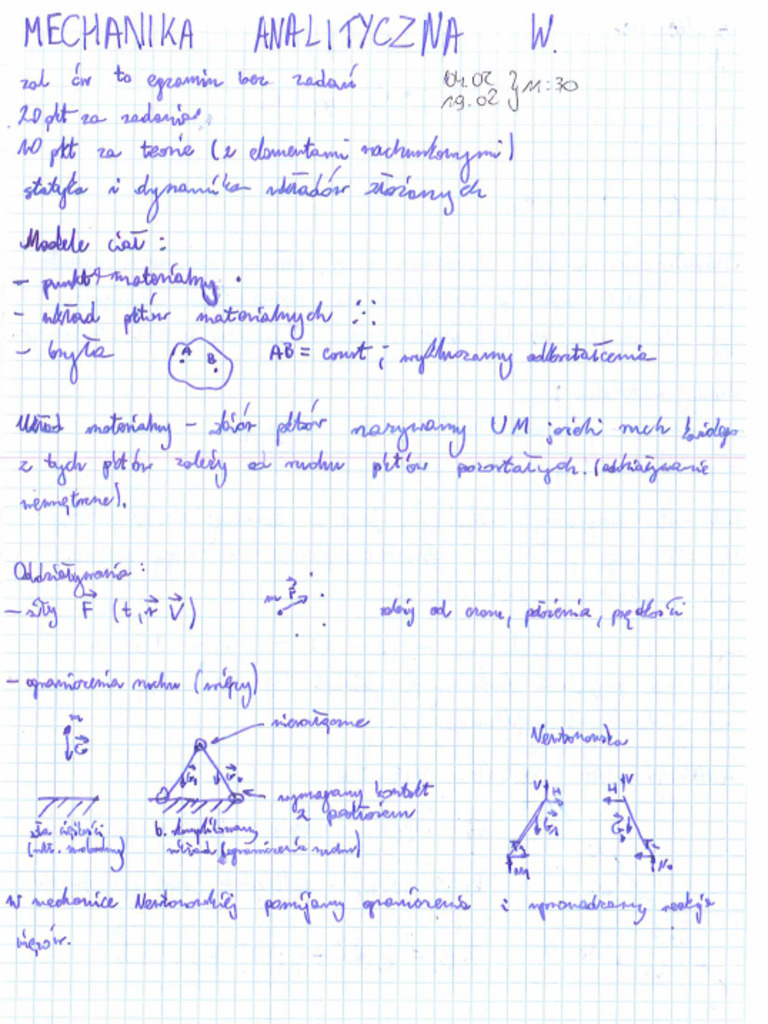 MECHANIKA ANALITYCZNA W.
zal ćw to egzamin bez zadań
04.02
19.02 } 11:30
20 pkt za zadania
10 pkt za teorię (z elementami rachunkowymi)
statyka i dynamika układów złożonych
Modele ciał:
- punkt materialny
- układ pktów materialnych
- bryła A B AB = const ; wykluczamy odkształcenia
Układ materialny - zbiór pktów nazywamy UM jeżeli ruch każdego
z tych pktów zależy od ruchu pktów pozostałych. (oddziaływanie
wewnętrzne).
Oddziaływania:
- siły F⃗ (t, r⃗ V⃗) m F⃗ zależy od czasu, położenia, prędkości
- ograniczenia ruchu (więzy)
m
G⃗
nierozłączne
G⃗₁ G⃗₂
wymagany kontakt
z podłożem
siła ciężkości
(ukł. swobodny)
b. skomplikowany
układ (ograniczenia ruchu)
Newtonowska
V H G⃗₁ N₁
H V G⃗₂ N₂
w mechanice Newtonowskiej pomijamy ograniczenia i wprowadzamy reakcje
więzów.